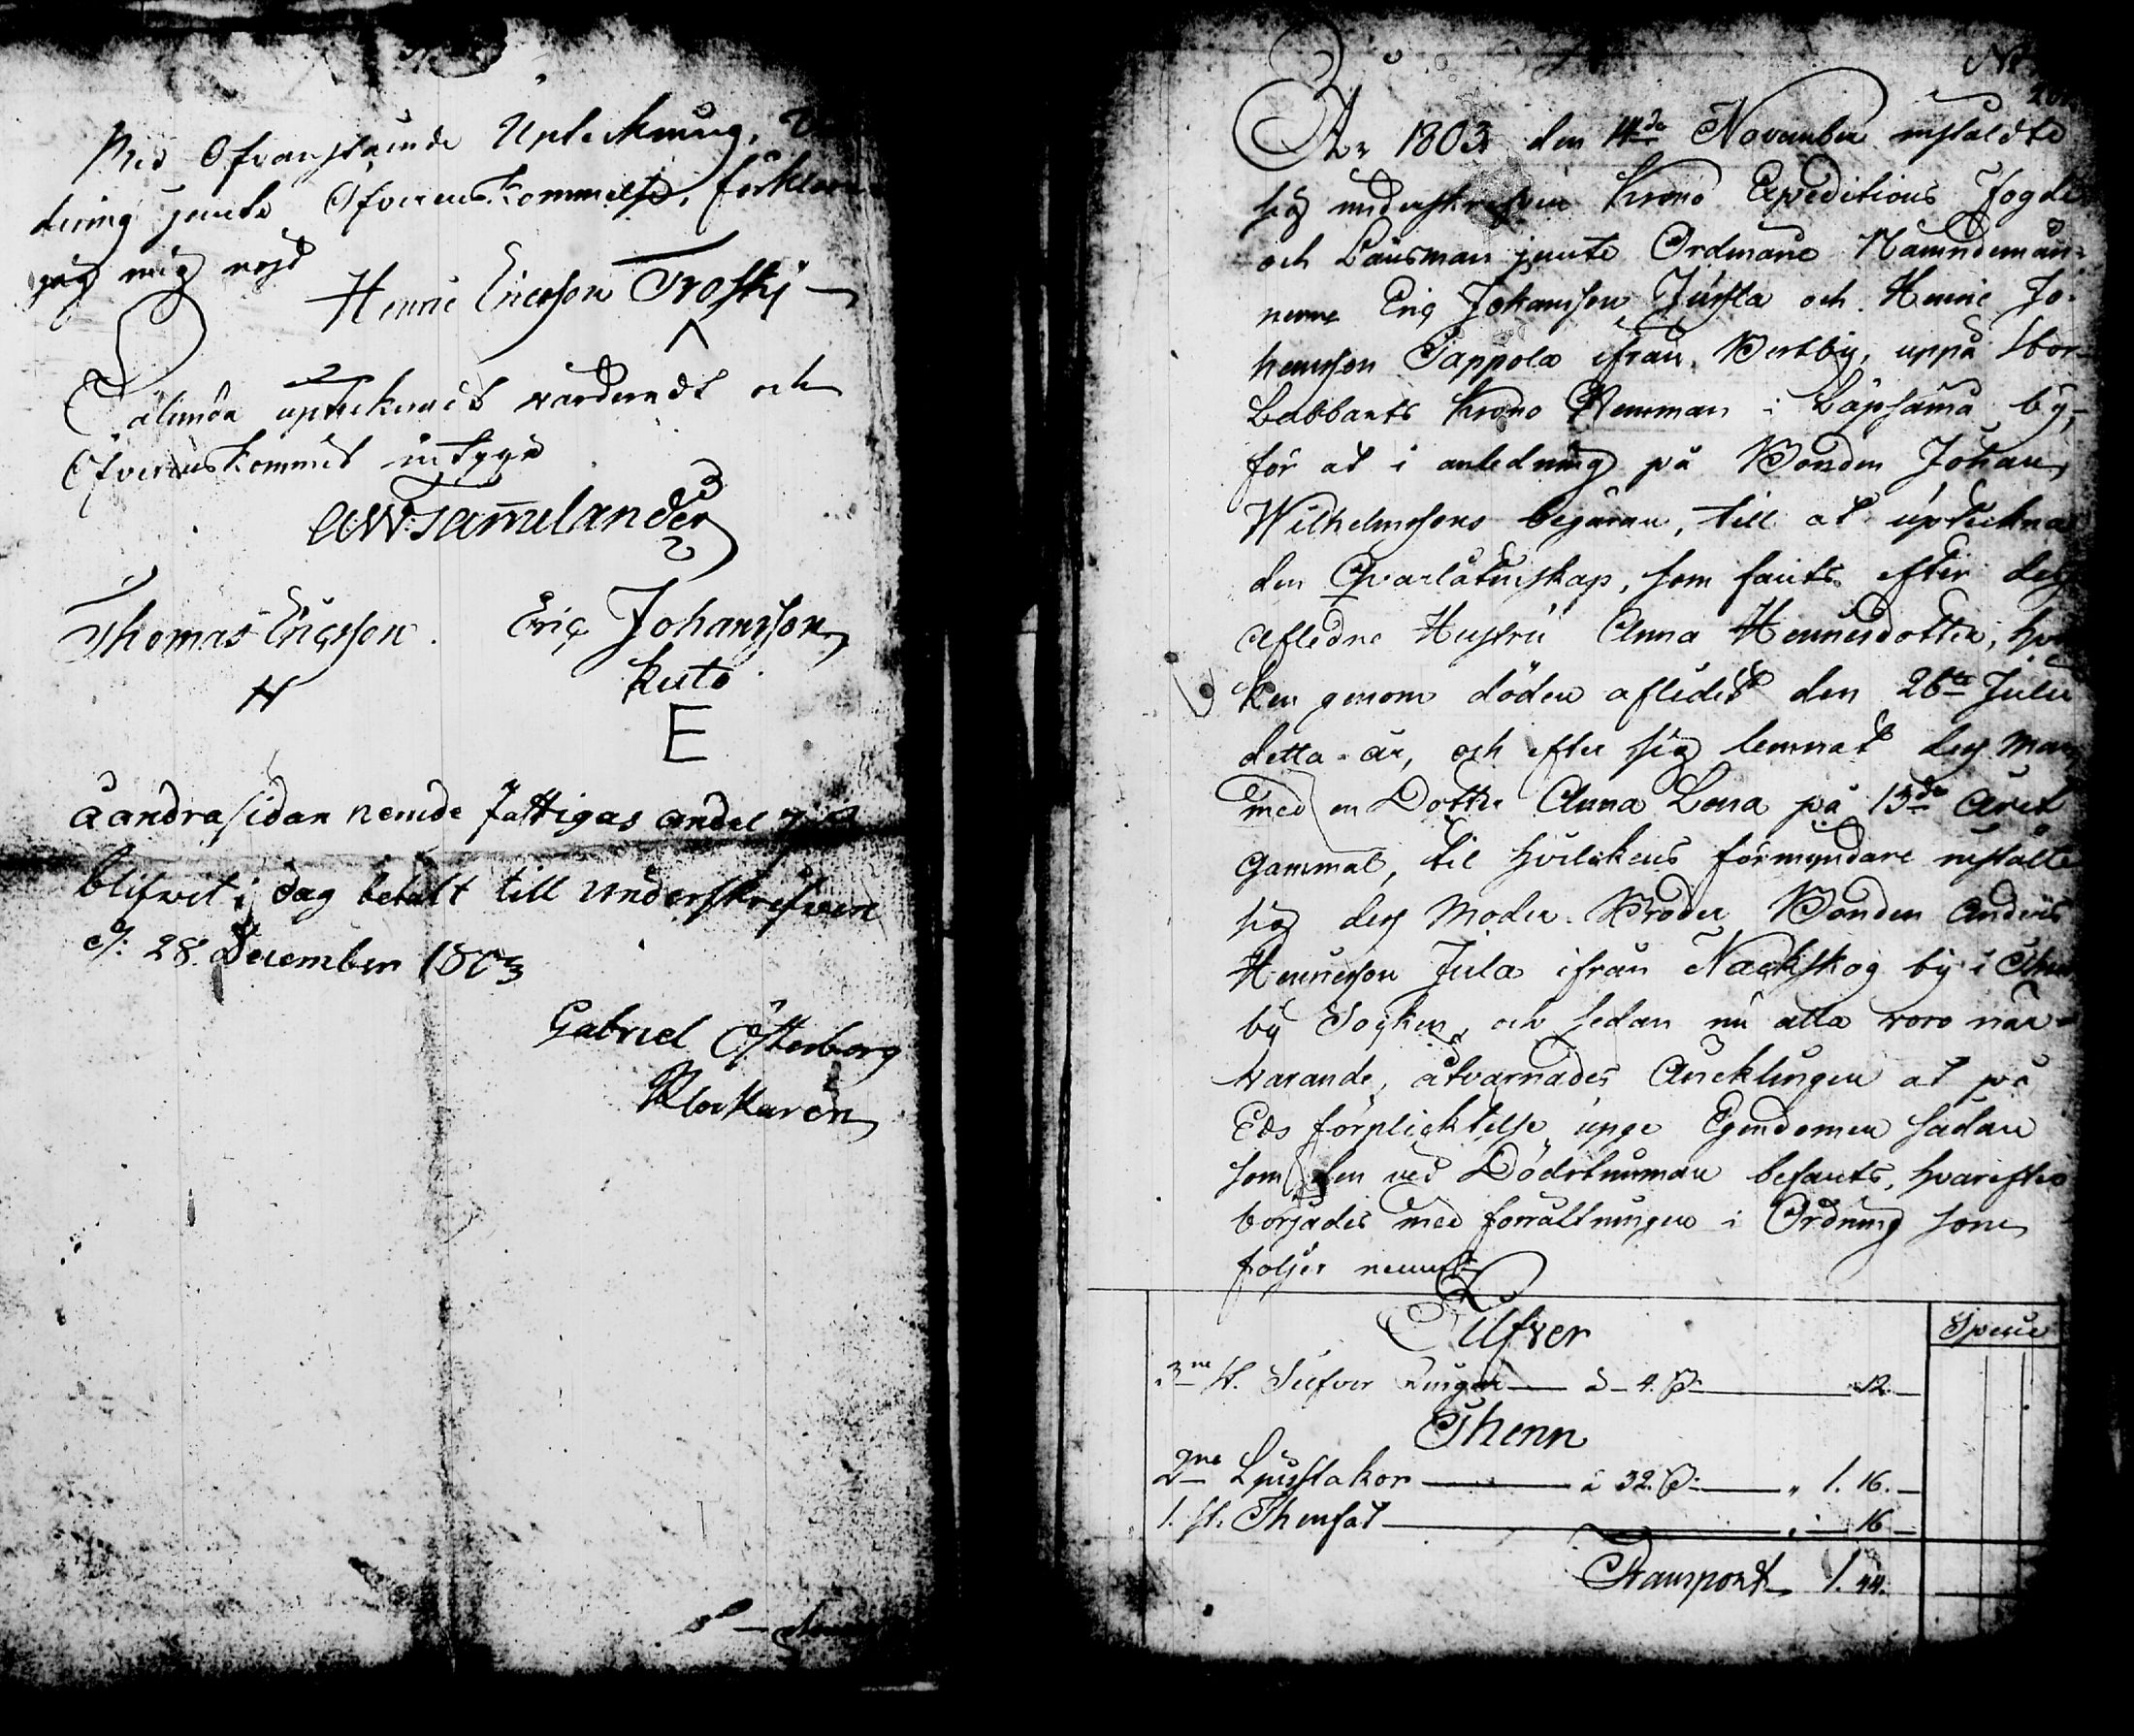 Med Ofvanstående Upteckning,
dering jemte Öfverenskommelse, förklarar
jag mig nöjd
Henric Ericsson Troski
Sålunda uptecknadt värderadt och
Öfverenskommit intyga
A W Tamelander
Thomas Ericsson. Eric Johansson
Kuto
E
å andra sidan nemde fattigas andel
blifvit i dag betalt till underskrifven
d: 28 December 1803
Gabriel Österberg
Klockaren
No
År 1803 den 14de November instälde
sig underskrefven Krono Expeditions Fogde
och Länsman jemte Ordinarie Nämndemän-
nerne Eric Johansson Jussila och Henric Jo-
hansson Pappola ifrån Vestby, uppå
Labbarts Krono Hemman i Läpsämä by,
för at i anledning på Bonden Johan
Wilhelmssons begäran, till at upteckna
den Qvarlåtenskap, som fants efter dess
Afledne Hustru Anna Henricsdotter, hvil
ken genom döden aflidit den 26te Julii
detta år, och efter sig lemnat dess Man
med en Dotter Anna Lena på 13de Året
Gammal, til hvilckens förmyndare instälte
sig dess Moder Broder Bonden Anders
Henricsson Jula ifrån Nackskog by i
by Socken, och sedan nu alla voro när-
varande, åtvarnades Encklingen at på
Eds förplicktelse upge Egendomen sådan
som den vid Dödstimman befants, hvarefter
börjades med förrättningen i Ordning som
följer nemligen
Silfver
Specie
3ne st. Silfver Ringar à 4. ß 12.
Thenn
2ne Ljusstakar à 32. ß 1. 16.
1. st. Thenfat 16
Transport 1. 44.